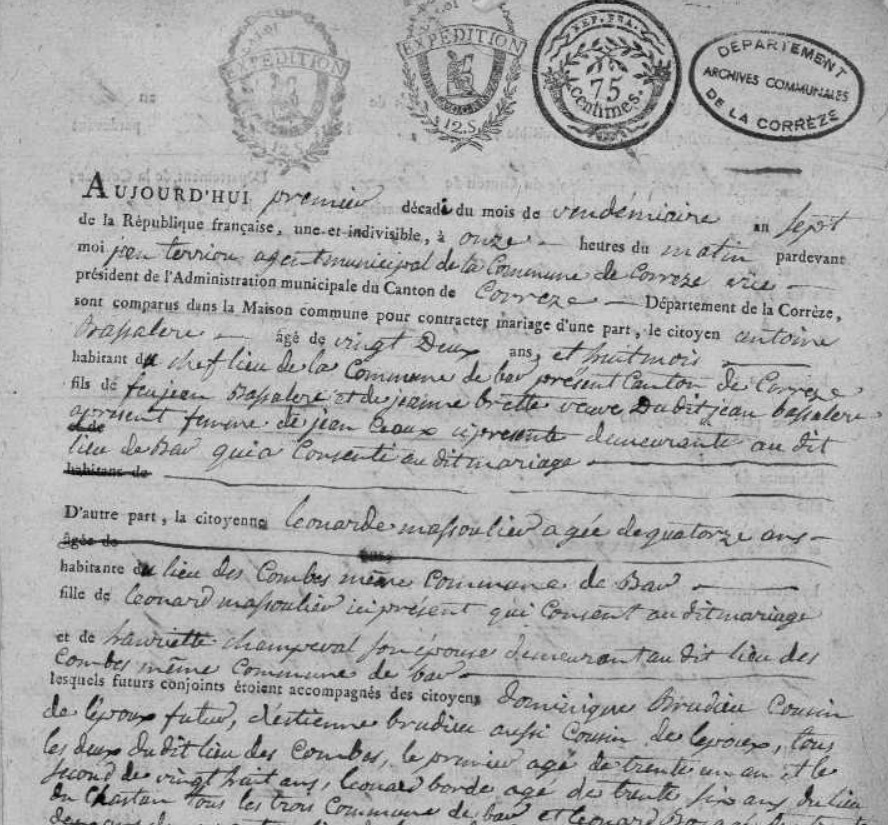 EXPÉDITION
12.S.
EXPÉDITION
12.S.
REP. FRA.
75
centimes.
DEPARTEMENT
ARCHIVES COMMUNALES
DE LA CORRÈZE
AUJOURD'HUI premier décadi du mois de vendémiaire an sept
de la République française, une et indivisible, à onze heures du matin pardevant
moi jean terriou agent municipal de la Commune de Correze vice
président de l'Administration municipale du Canton de Correze Département de la Corrèze,
sont comparus dans la Maison commune pour contracter mariage d'une part, le citoyen antoine
Bassalere âgé de vingt Deux ans, et huit mois
habitant du chef lieu de la Commune de bar présent Canton de Correze
fils de feu jean Bassalere et de jeanne brette veuve Dudit jean bassalere
apresent femme de jean Ceaux ici presente demeurante au dit
et de
lieu de Bar qui a Consenti au dit mariage
habitans de
D'autre part, la citoyenne leonarde massoulier agée de quatorze ans
âgée de
habitante du lieu des Combes même Commune de Bar
fille de leonard massoulier ici présent qui Consent au dit mariage
et de hanriette champeval son épouse demeurant au dit lieu des
Combes même Commune de bar
lesquels futurs conjoints étoient accompagnés des citoyens Dominique Brudieu Cousin
de lépoux futur, d'estienne brudieu aussi Cousin de lepoux, tous
les deux du dit lieu des Combes, le premier agé de trente un an et le
second de vingt huit ans, leonard borde agé de trente six ans du lieu
du Chastan tous les trois Commune de bar et leonard